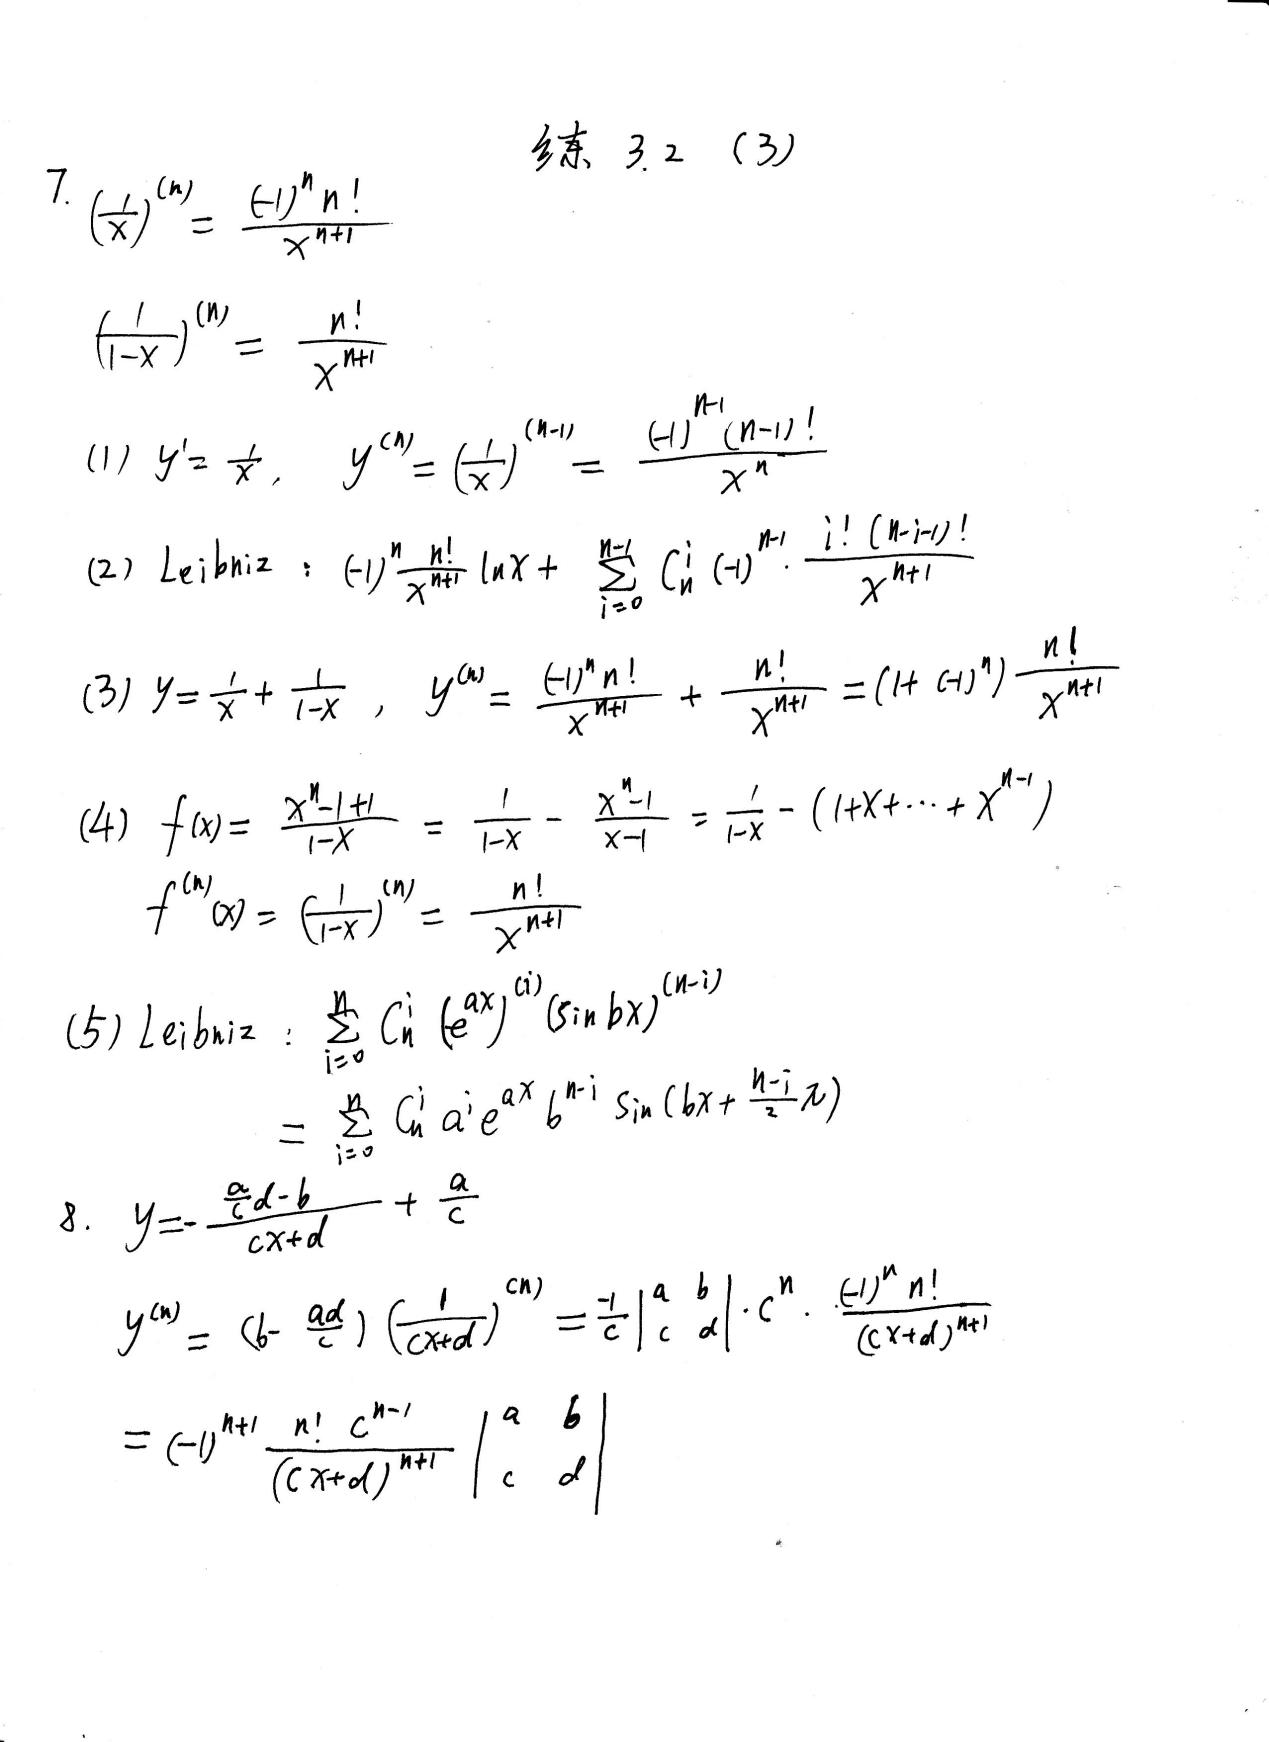 练 3.2 (3)
7. (1/x)^(n) = (-1)^n n! / x^{n+1}
(1/(1-x))^(n) = n! / x^{n+1}
(1) y' = 1/x, y^(n) = (1/x)^(n-1) = (-1)^{n-1} (n-1)! / x^n
(2) Leibniz : (-1)^n n!/x^{n+1} lnx + Σ_{i=0}^{n-1} C_n^i (-1)^{n-1} · i! (n-i-1)! / x^{n+1}
(3) y = 1/x + 1/(1-x), y^(n) = (-1)^n n! / x^{n+1} + n! / x^{n+1} = (1+(-1)^n) n! / x^{n+1}
(4) f(x) = (x^n-1+1)/(1-x) = 1/(1-x) - (x^n-1)/(x-1) = 1/(1-x) - (1+x+⋯+x^{n-1})
f^(n)(x) = (1/(1-x))^(n) = n! / x^{n+1}
(5) Leibniz : Σ_{i=0}^{n} C_n^i (e^{ax})^(i) (sin bx)^(n-i)
= Σ_{i=0}^{n} C_n^i a^i e^{ax} b^{n-i} sin(bx + (n-i)/2 π)
8. y = - (a/c d - b)/(cx+d) + a/c
y^(n) = (b - ad/c) (1/(cx+d))^(n) = -1/c |a b; c d| · c^n · (-1)^n n! / (cx+d)^{n+1}
= (-1)^{n+1} n! c^{n-1} / (cx+d)^{n+1} |a b; c d|